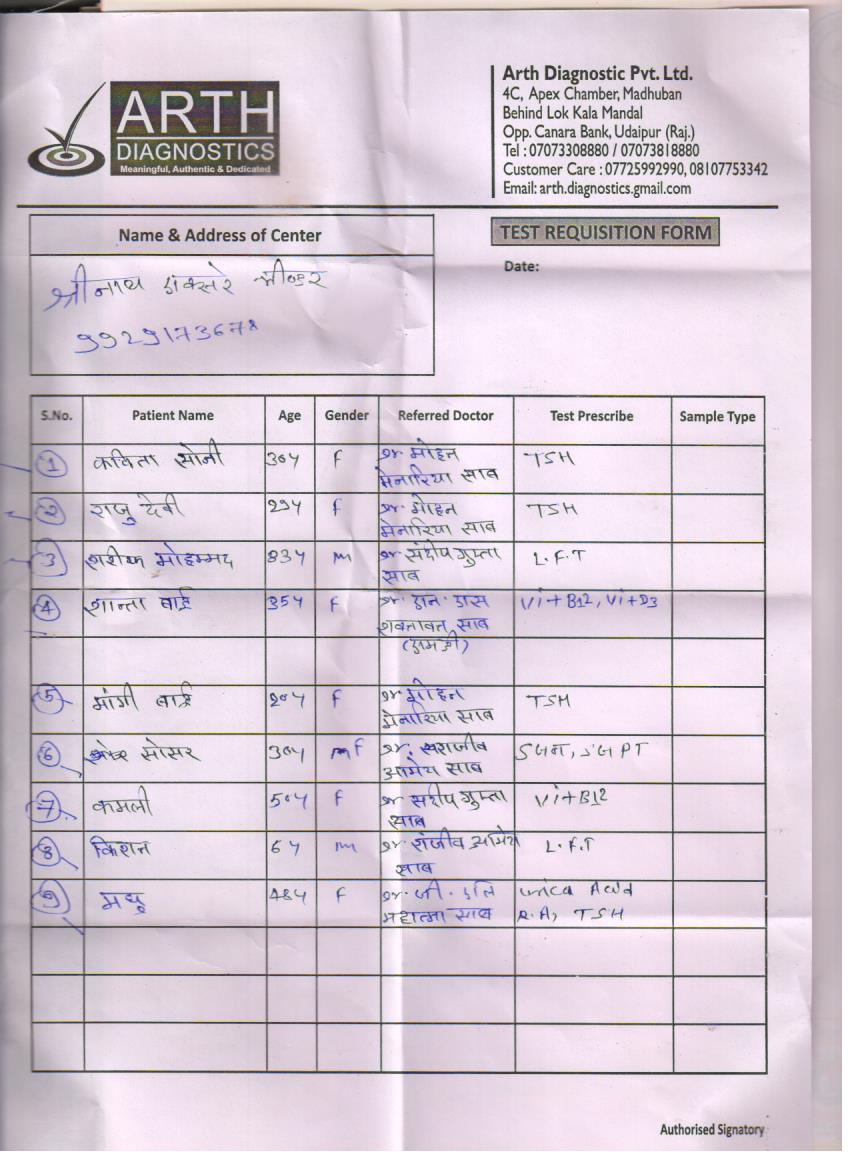 ARTH
DIAGNOSTICS
Meaningful, Authentic & Dedicated
Arth Diagnostic Pvt. Ltd.
4C, Apex Chamber, Madhuban
Behind Lok Kala Mandal
Opp. Canara Bank, Udaipur (Raj.)
Tel : 07073308880 / 07073818880
Customer Care : 07725992990, 08107753342
Email: arth.diagnostics.gmail.com
Name & Address of Center
TEST REQUISITION FORM
Date:
श्रीनाथ
9929173678
S.No. Patient Name Age Gender Referred Doctor Test Prescribe Sample Type
1 कविता सोनी 30Y F Dr मोहन मेनारिया साब TSH
2 राजु देवी 29Y F Dr. मोहन मेनारिया साब TSH
3 मोहम्मद 83Y m Dr संदीप गुप्ता साब L.F.T
4 शान्ता बाई 35Y F Dr. दान साब Vit B12, Vit D3
5 मांगी बाई 20Y F Dr. मोहन मेनारिया साब TSH
6 सोसर 30Y F Dr. साब SGOT, SGPT
7 कमली 50Y F Dr संदीप गुप्ता साब Vit B12
8 किशन 6Y m Dr. साब L.F.T
9 मधु 48Y F Dr. जी. महात्मा साब Urica Acid
R.A, TSH
Authorised Signatory